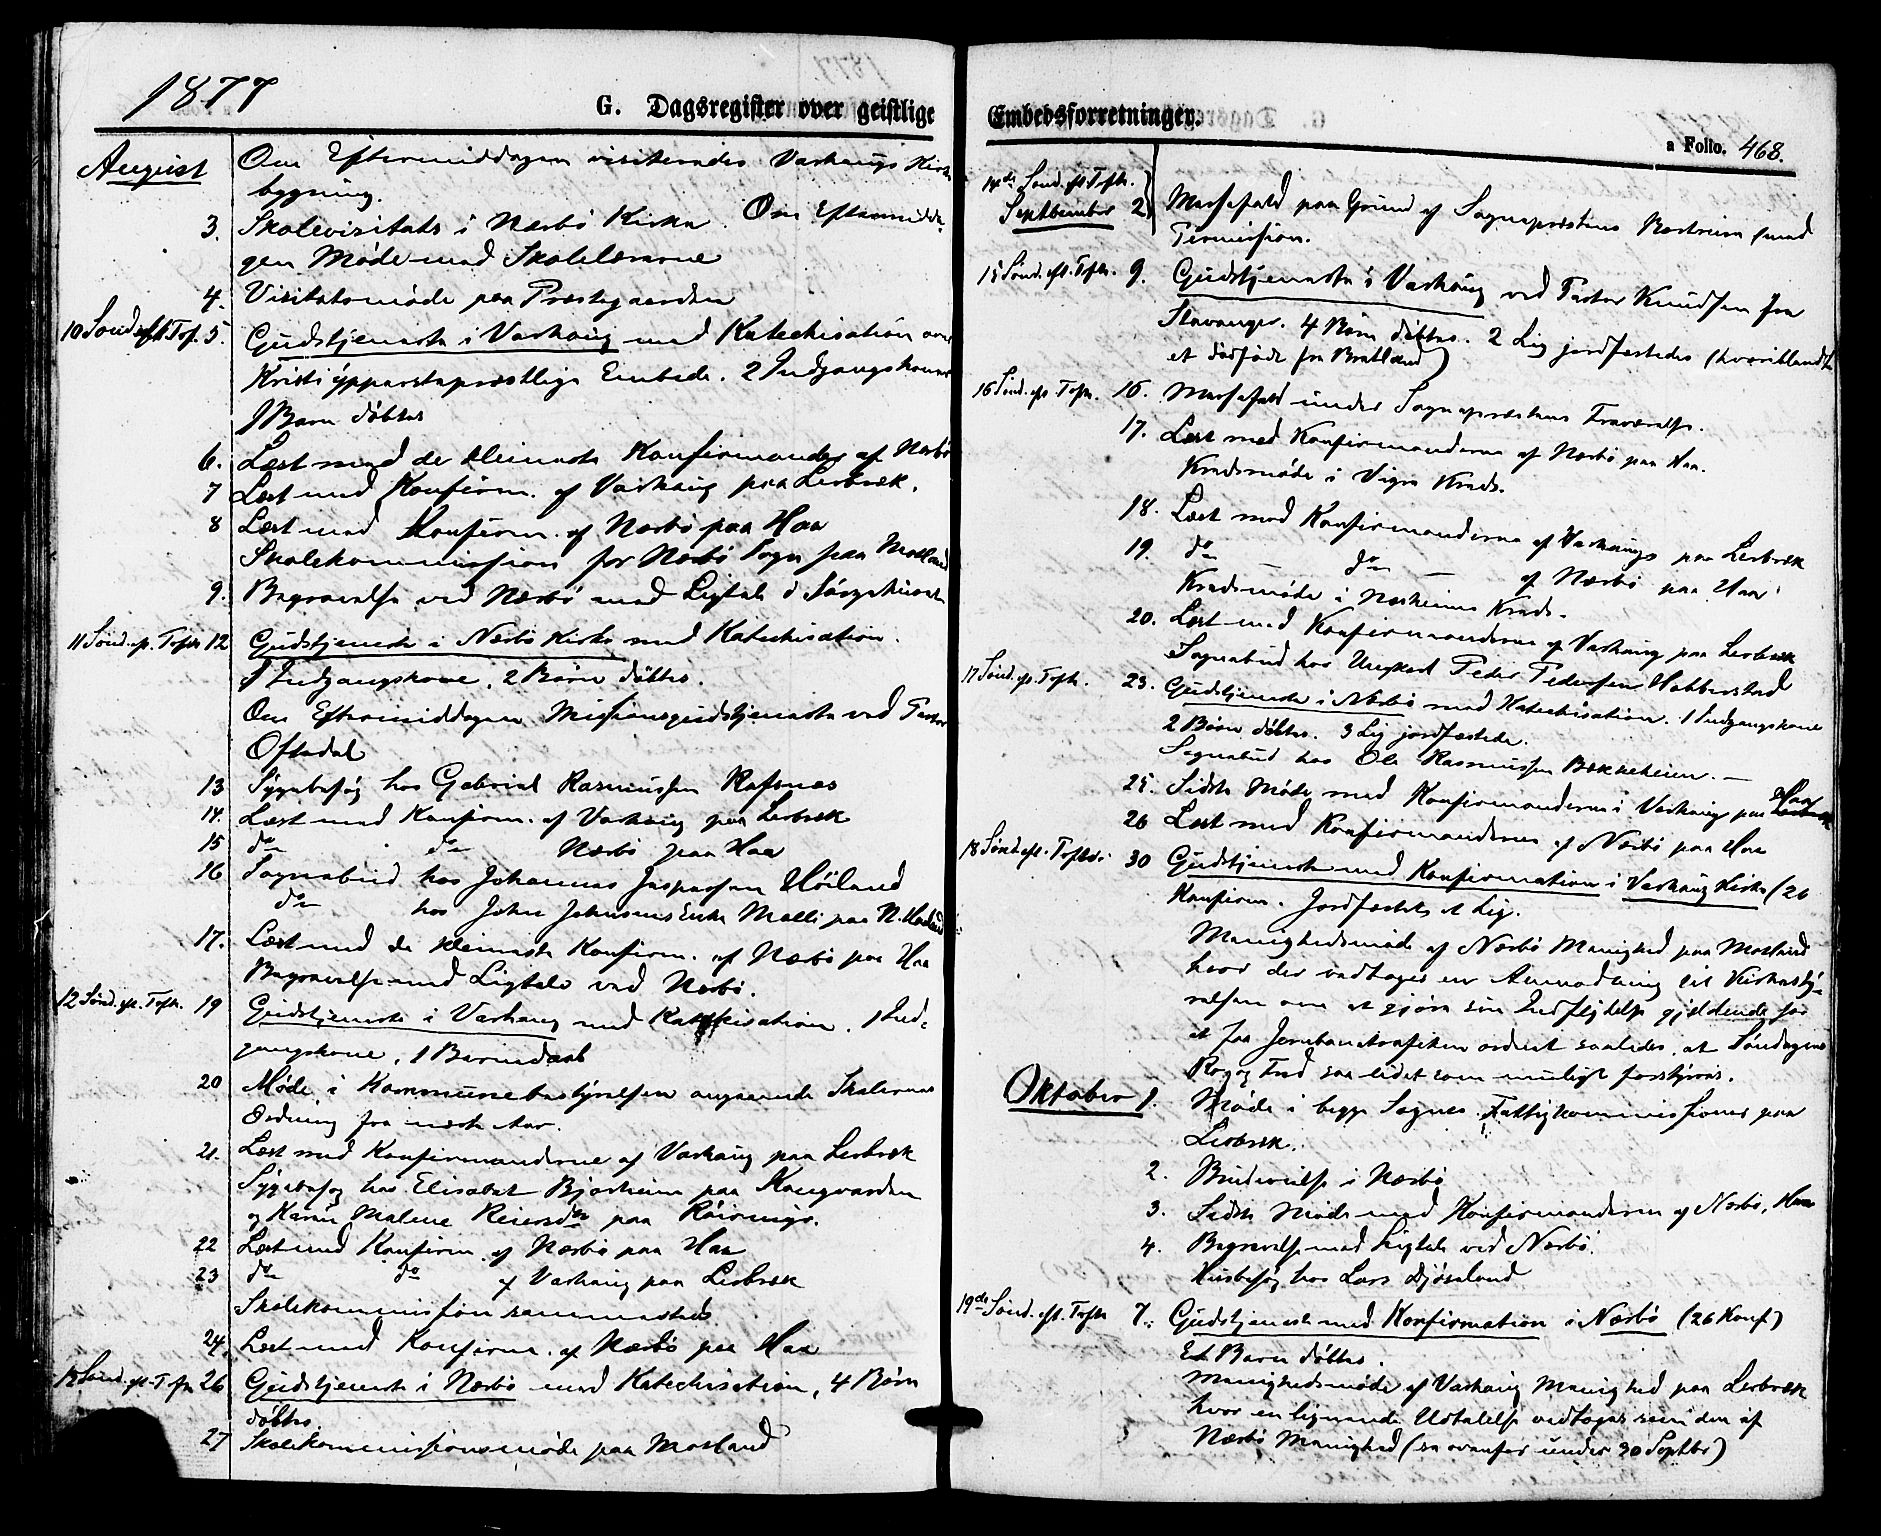 1877
G. Dagsregister over geistlige
August
Om Eftermiddagen visiteredes Varhaugs Kirke
bygning.
3. Skolevisitats i Nærbø Kirke. Om Eftermidda-
gen Møde med Skolelærerne
4. Visitatsmøde paa Præstegaarden
10 Sønd. eft. Tref. 5. Gudstjeneste i Varhaug med Katechisation over
Kristi ypperstepræstlige Embede. 2 Indgangskoner
1 Barn døbtes
6. Læst med de Konfirmander af Nærbø
7 Læst med Konfirm. af Varhaug paa Lerbræk.
8 Læst med Konfirm. af Nærbø paa Haa
Skolekommission for Nærbø Sogn paa Motland
9. Begravelse ved Nærbø med Ligtale i Sørgehuset
11 Sønd. ef. Trefh 12 Gudstjeneste i Nærbø Kirke med Katechisation.
1 Indgangskone, 2 Børn døbtes.
Om Eftermiddagen Missionsgudstjeneste ved Pastor
Oftedal
13 Sygebesøg hos Gabriel Rasmussen Rafsnes
14. Læst med Konfirm. af Varhaug paa Lerbræk
15 do do Nærbø paa Haa
16 Sognebud hos Johannes Jespersen Høiland
do hos John Johnsens Enke Malli paa N.
17. Læst med de Konfirm. af Nærbø paa Haa
Begravelse med Ligtale ved Nærbø.
12 Sønd. ef. Trefh. 19 Gudstjeneste i Varhaug med Katekisation. 1 Ind-
gangskone, 1 Barnedaab
20 Møde i Kommunebestyrelsen angaaende Skolernes
Ordning fra næste Aar.
21. Læst med Konfirmanderne af Varhaug paa Lerbræk
Sygebesøg hos Elisabet Bjorheim paa Kongvarden
og Karen Malene Reiersdtr paa
22 Læst med Konfirm. af Nærbø paa Haa
23 do do af Varhaug paa Lerbræk
Skolekommission sammesteds
24. Læst med Konfirm. af Nærbø paa Haa
13 Sønd. ef. Trefh 26 Gudstjeneste i Nærbø med Katechisation, 4 Børn
døbtes.
27 Skolekommissionsmøde paa Motland
Embedsforretninger.
a Folio. 468.
14de Sønd. eft Trefh.
September 2 Messefald paa Grund af Sognepræstens Bortreise (med
Permission.
15 Sønd. eft. Trefh. 9. Gudstjeneste i Varhaug ved Pastor Knudsen fra
Stavanger. 4 Børn døbtes. 2 Lig jordfæstedes (hvoriblandt
et dødfødt fra Bratland)
16 Sønd. eft Trefh. 16. Messefald under Sognepræstens Fraværelse.
17. Læst med Konfirmanderne af Nærbø paa Haa.
Kredsmøde i Vigre Kreds.
18. Læst med Konfirmanderne af Varhaugs paa Lerbræk
19. do — do — af Nærbø paa Haa
Kredsmøde i Nærheims Kreds.
20. Læst med Konfirmanderne af Varhaug paa Lerbræk
Sognebud hos Ungkarl Peder Pedersen Hobberstad
17 Sønd. ef. Trefh. 23. Gudstjeneste i Nærbø med Katechisation. 1 Indgangskone
2 Børn døbtes. 3 Lig jordfæstede.
Sognebud hos Ole Rasmussen Bækkeheien. —
25. Sidste Møde med Konfirmanderne i Varhaug paa Haa
26 Læst med Konfirmanderne af Nærbø paa Haa
18 Sønd. eft. Trefh. 30 Gudstjeneste med Konfirmation i Varhaug Kirke (26
Konfirm. Jordfæstet et Lig.
Menighedsmøde af Nærbø Menighed paa Motland
hvor der vedtoges en Anmodning til Kirkesty-
relsen om at gjøre sin Indflydelse gjældende for
at faa Jernbanetrafiken ordnet saaledes, at Søndagens
Ro og Fred saa lidet som muligt forstyrres.
Oktober 1. Møde i begge Sognes Fattigkommissioner paa
Lerbræk.
2. Brudevielse i Nærbø
3. Sidste Møde med Konfirmanderne af Nærbø, Haa
4. Begravelse med Ligtale ved Nærbø.
Husbesøg hos Lars Djøseland
19de Sønd. eft. Trefh 7. Gudstjeneste med Konfirmation i Nærbø (26 Konf)
Et Barn døbtes.
Menighedsmøde af Varhaug Menighed paa Lerbræk
hvor en lignende Udtalelse vedtoges som den af
Nærbø Menighed (se ovenfor under 30 Septbr)